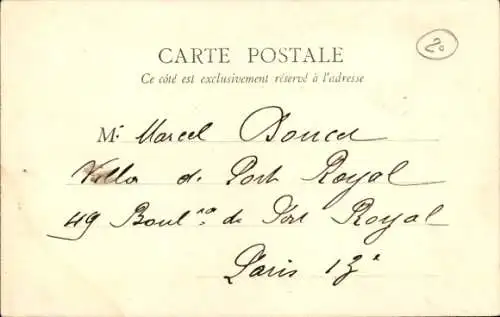 CARTE POSTALE
Ce côté est exclusivement réservé à l'adresse
20
Mr. Marcel Doucet
Villa de Port Royal
49 Boulard de Port Royal
Paris 13e